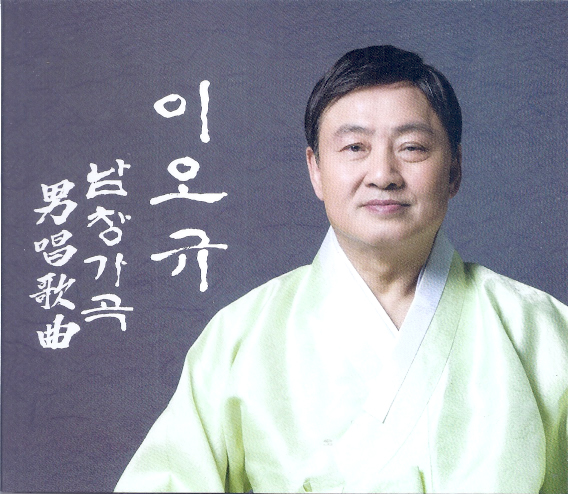 이오규
남창가곡
男唱歌曲